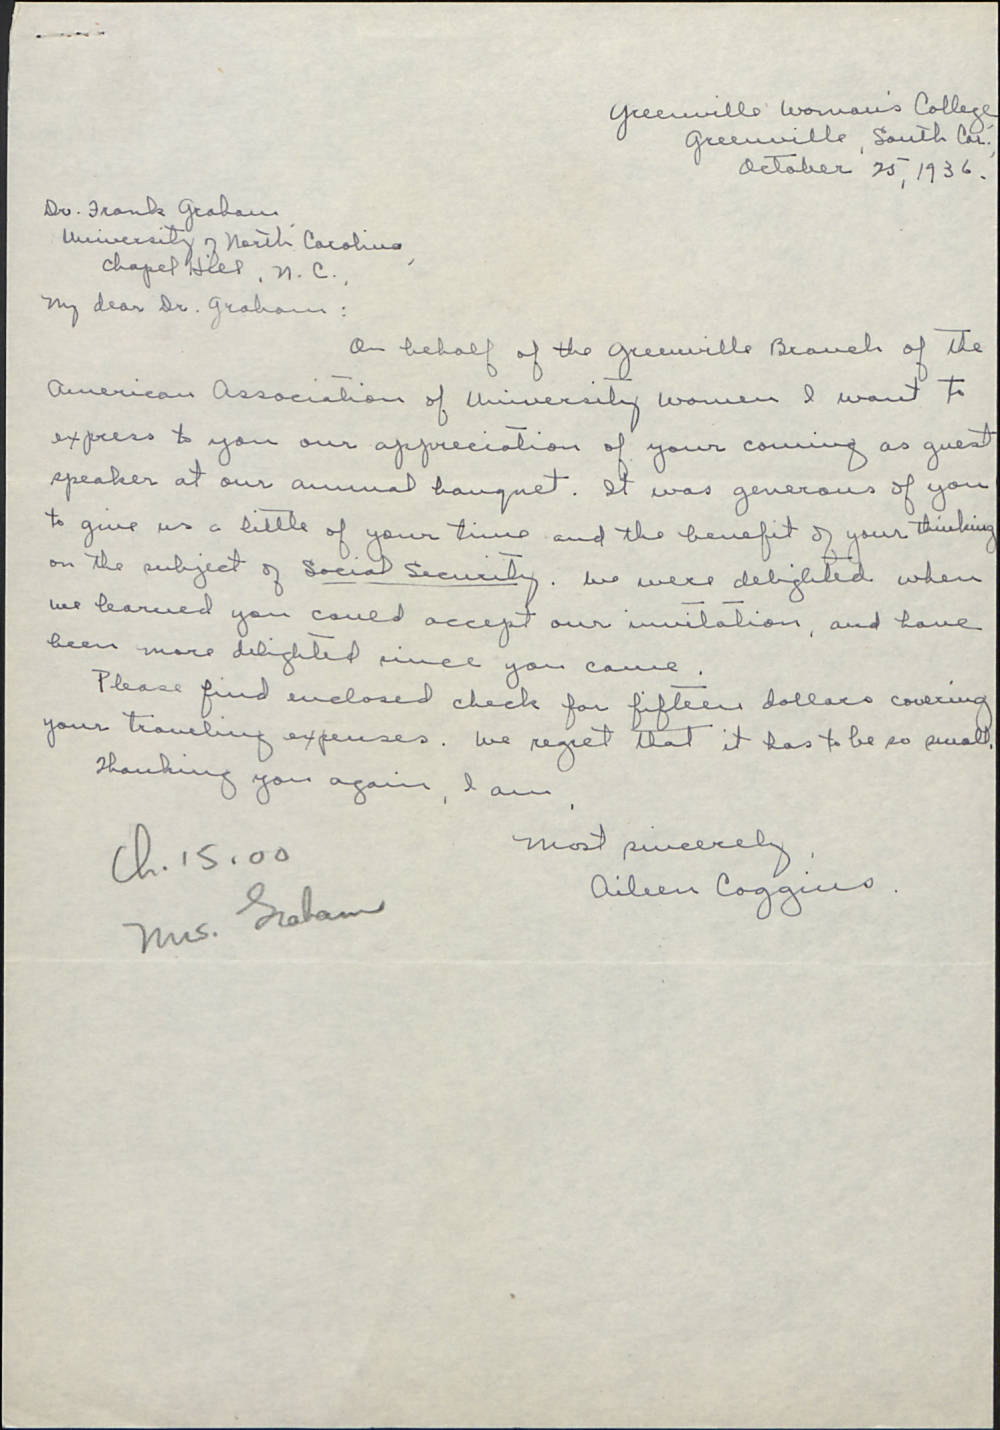 Greenville Woman's College,
Greenville, South Car.,
October 25, 1936.
Dr. Frank Graham
University of North Carolina,
Chapel Hill, N. C.,
My dear Dr. Graham:
On behalf of the Greenville Branch of the
American Association of University Women I want to
express to you our appreciation of your coming as guest
speaker at our annual banquet. It was generous of you
to give us a little of your time and the benefit of your thinking
on the subject of Social Security. We were delighted when
we learned you could accept our invitation, and have
been more delighted since you came.
Please find enclosed check for fifteen dollars covering
your traveling expenses. We regret that it has to be so small.
Thanking you again, I am,
Most sincerely,
Aileen Coggins.
Ch. 15.00
Mrs. Graham